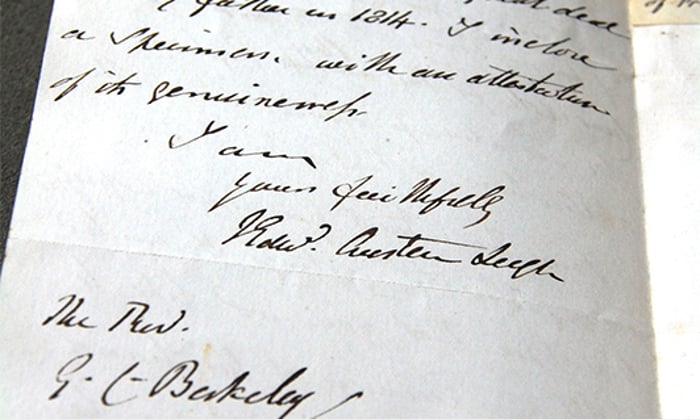 father in 1814. I inclose
a Specimen. with an attestation
of its genuineness.
I am
yours faithfully
J Edwd. Austen Leigh
The Revd.
G. C. Berkeley